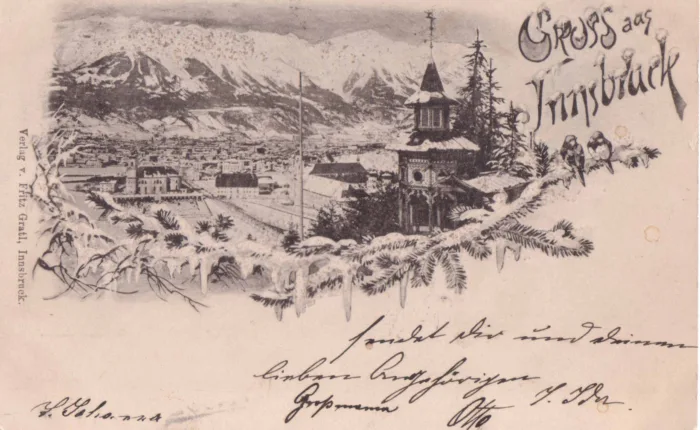 Gruss aus
Innsbruck
Verlag v. Fritz Gratl, Innsbruck.
sendet dir und deinen
lieben Angehörigen
Großmama Otto J. Ida
J. Johanna